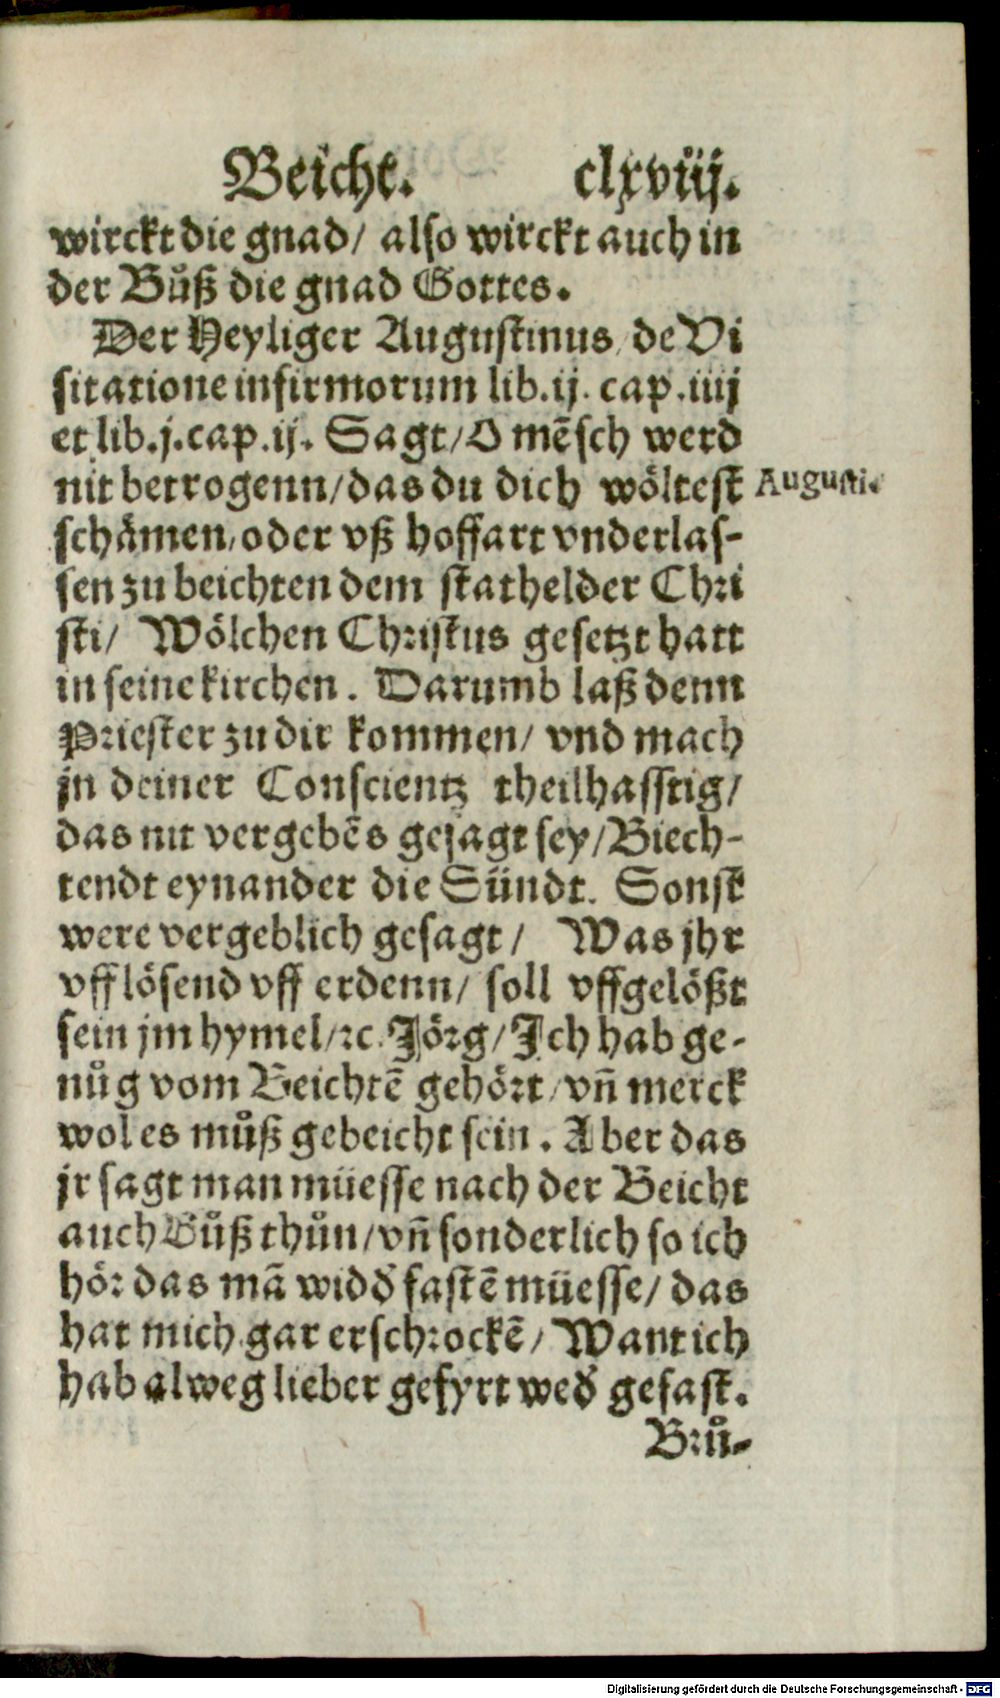 Beicht. clxviij.
wirckt die gnad/ also wirckt auch in
der Bůß die gnad Gottes.
Der Heyliger Augustinus/ de Vi
sitatione infirmorum lib.ij. cap.iiij
et lib.j.cap.ij. Sagt/O mẽsch werd
nit betrogenn/das du dich wöltest
Augusti.
schämen/oder vß hoffart vnderlas-
sen zu beichten dem stathelder Chri
sti/ Wölchen Christus gesetzt hatt
in seine kirchen. Darumb laß denn
Priester zu dir kommen/ vnd mach
jn deiner Conscientz theilhafftig/
das nit vergebẽs gesagt sey/Biech-
tendt eynander die Sündt. Sonst
were vergeblich gesagt/ Was jhr
vfflösend vff erdenn/ soll vffgelößt
sein jm hymel/ꝛc. Jörg/Ich hab ge-
nůg vom Beichtẽ gehört/vñ merck
wol es můß gebeicht sein. Aber das
jr sagt man müesse nach der Beicht
auch Bůß thůn/vñ sonderlich so ich
hör das mã widď fastẽ müesse/ das
hat mich gar erschrockẽ/ Want ich
hab alweg lieber gefyrt weď gefast.
Brů-
Digitalisierung gefördert durch die Deutsche Forschungsgemeinschaft - DFG